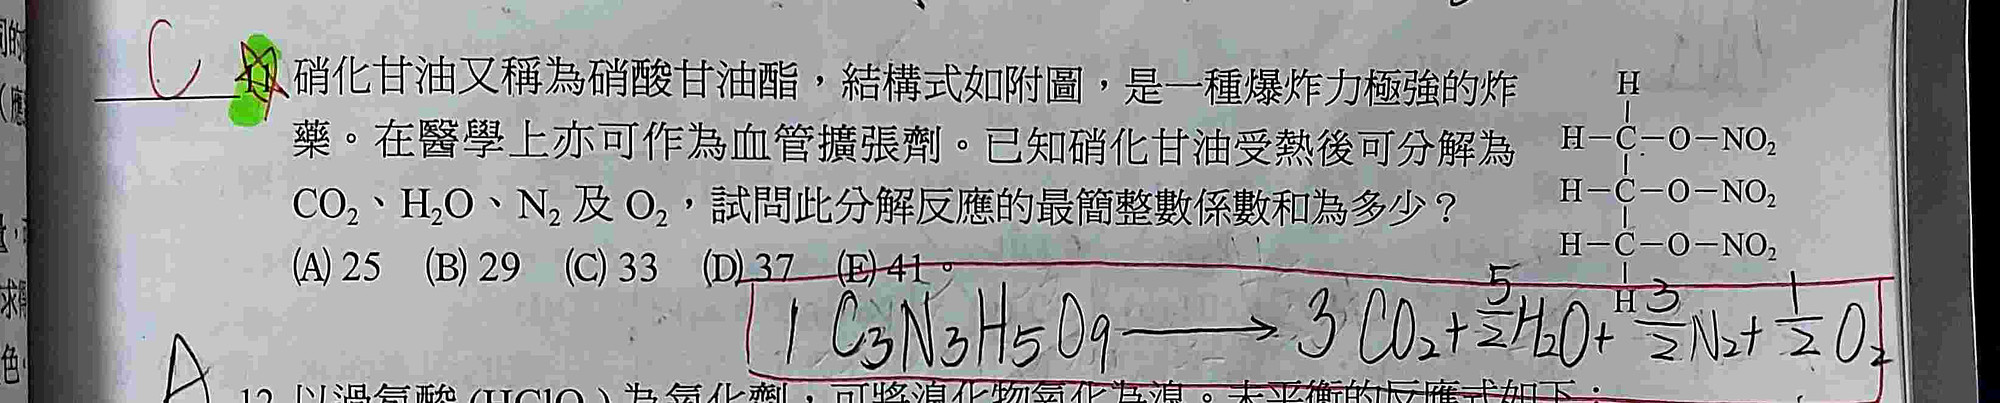 C 11. 硝化甘油又稱為硝酸甘油酯，結構式如附圖，是一種爆炸力極強的炸
藥。在醫學上亦可作為血管擴張劑。已知硝化甘油受熱後可分解為
CO₂、H₂O、N₂ 及 O₂，試問此分解反應的最簡整數係數和為多少？
(A) 25 (B) 29 (C) 33 (D) 37 (E) 41。
H
H－C－O－NO₂
H－C－O－NO₂
H－C－O－NO₂
H
1 C₃N₃H₅O₉ → 3 CO₂ + 5/2 H₂O + 3/2 N₂ + 1/2 O₂
A 12. 以過氯酸 (HClO₄) 為氧化劑，可將溴化物氧化為溴。未平衡的反應式如下：